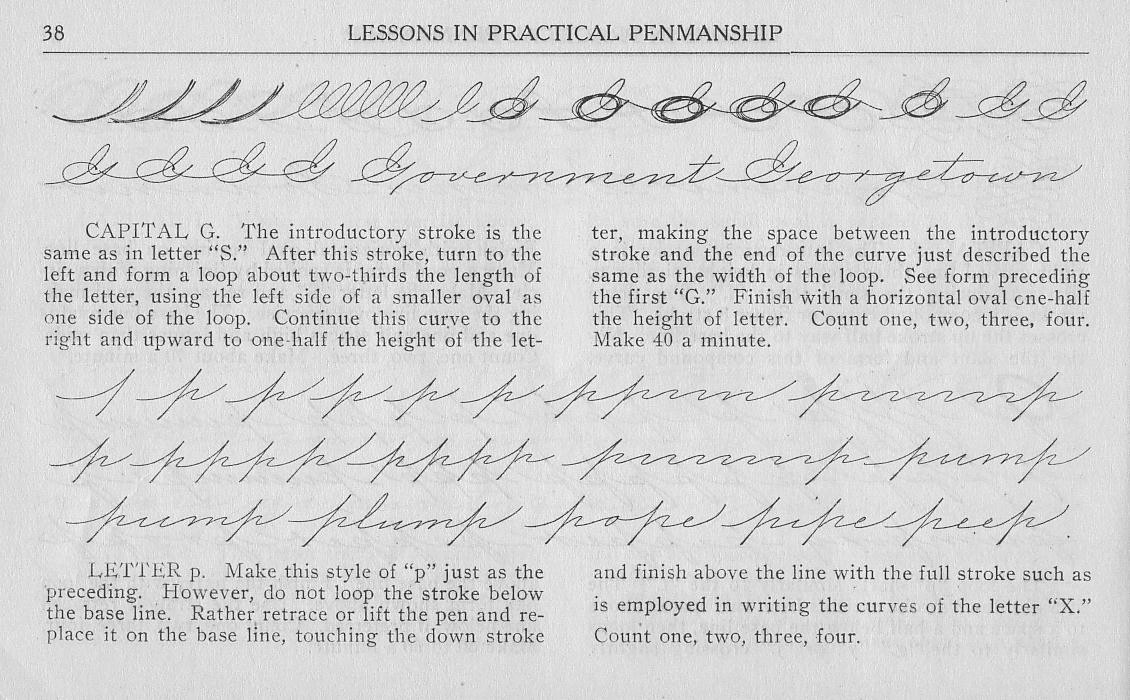 38 LESSONS IN PRACTICAL PENMANSHIP
G G G
G G G G Government Georgetown
CAPITAL G. The introductory stroke is the
same as in letter “S.” After this stroke, turn to the
left and form a loop about two-thirds the length of
the letter, using the left side of a smaller oval as
one side of the loop. Continue this curve to the
right and upward to one-half the height of the let-
ter, making the space between the introductory
stroke and the end of the curve just described the
same as the width of the loop. See form preceding
the first “G.” Finish with a horizontal oval one-half
the height of letter. Count one, two, three, four.
Make 40 a minute.
p p p p p
p pppp pppp pump
pump plump pope pipe peep
LETTER p. Make this style of “p” just as the
preceding. However, do not loop the stroke below
the base line. Rather retrace or lift the pen and re-
place it on the base line, touching the down stroke
and finish above the line with the full stroke such as
is employed in writing the curves of the letter “X.”
Count one, two, three, four.